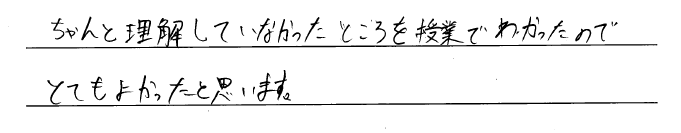 ちゃんと理解していなかったところを授業でわかったので
とてもよかったと思います。